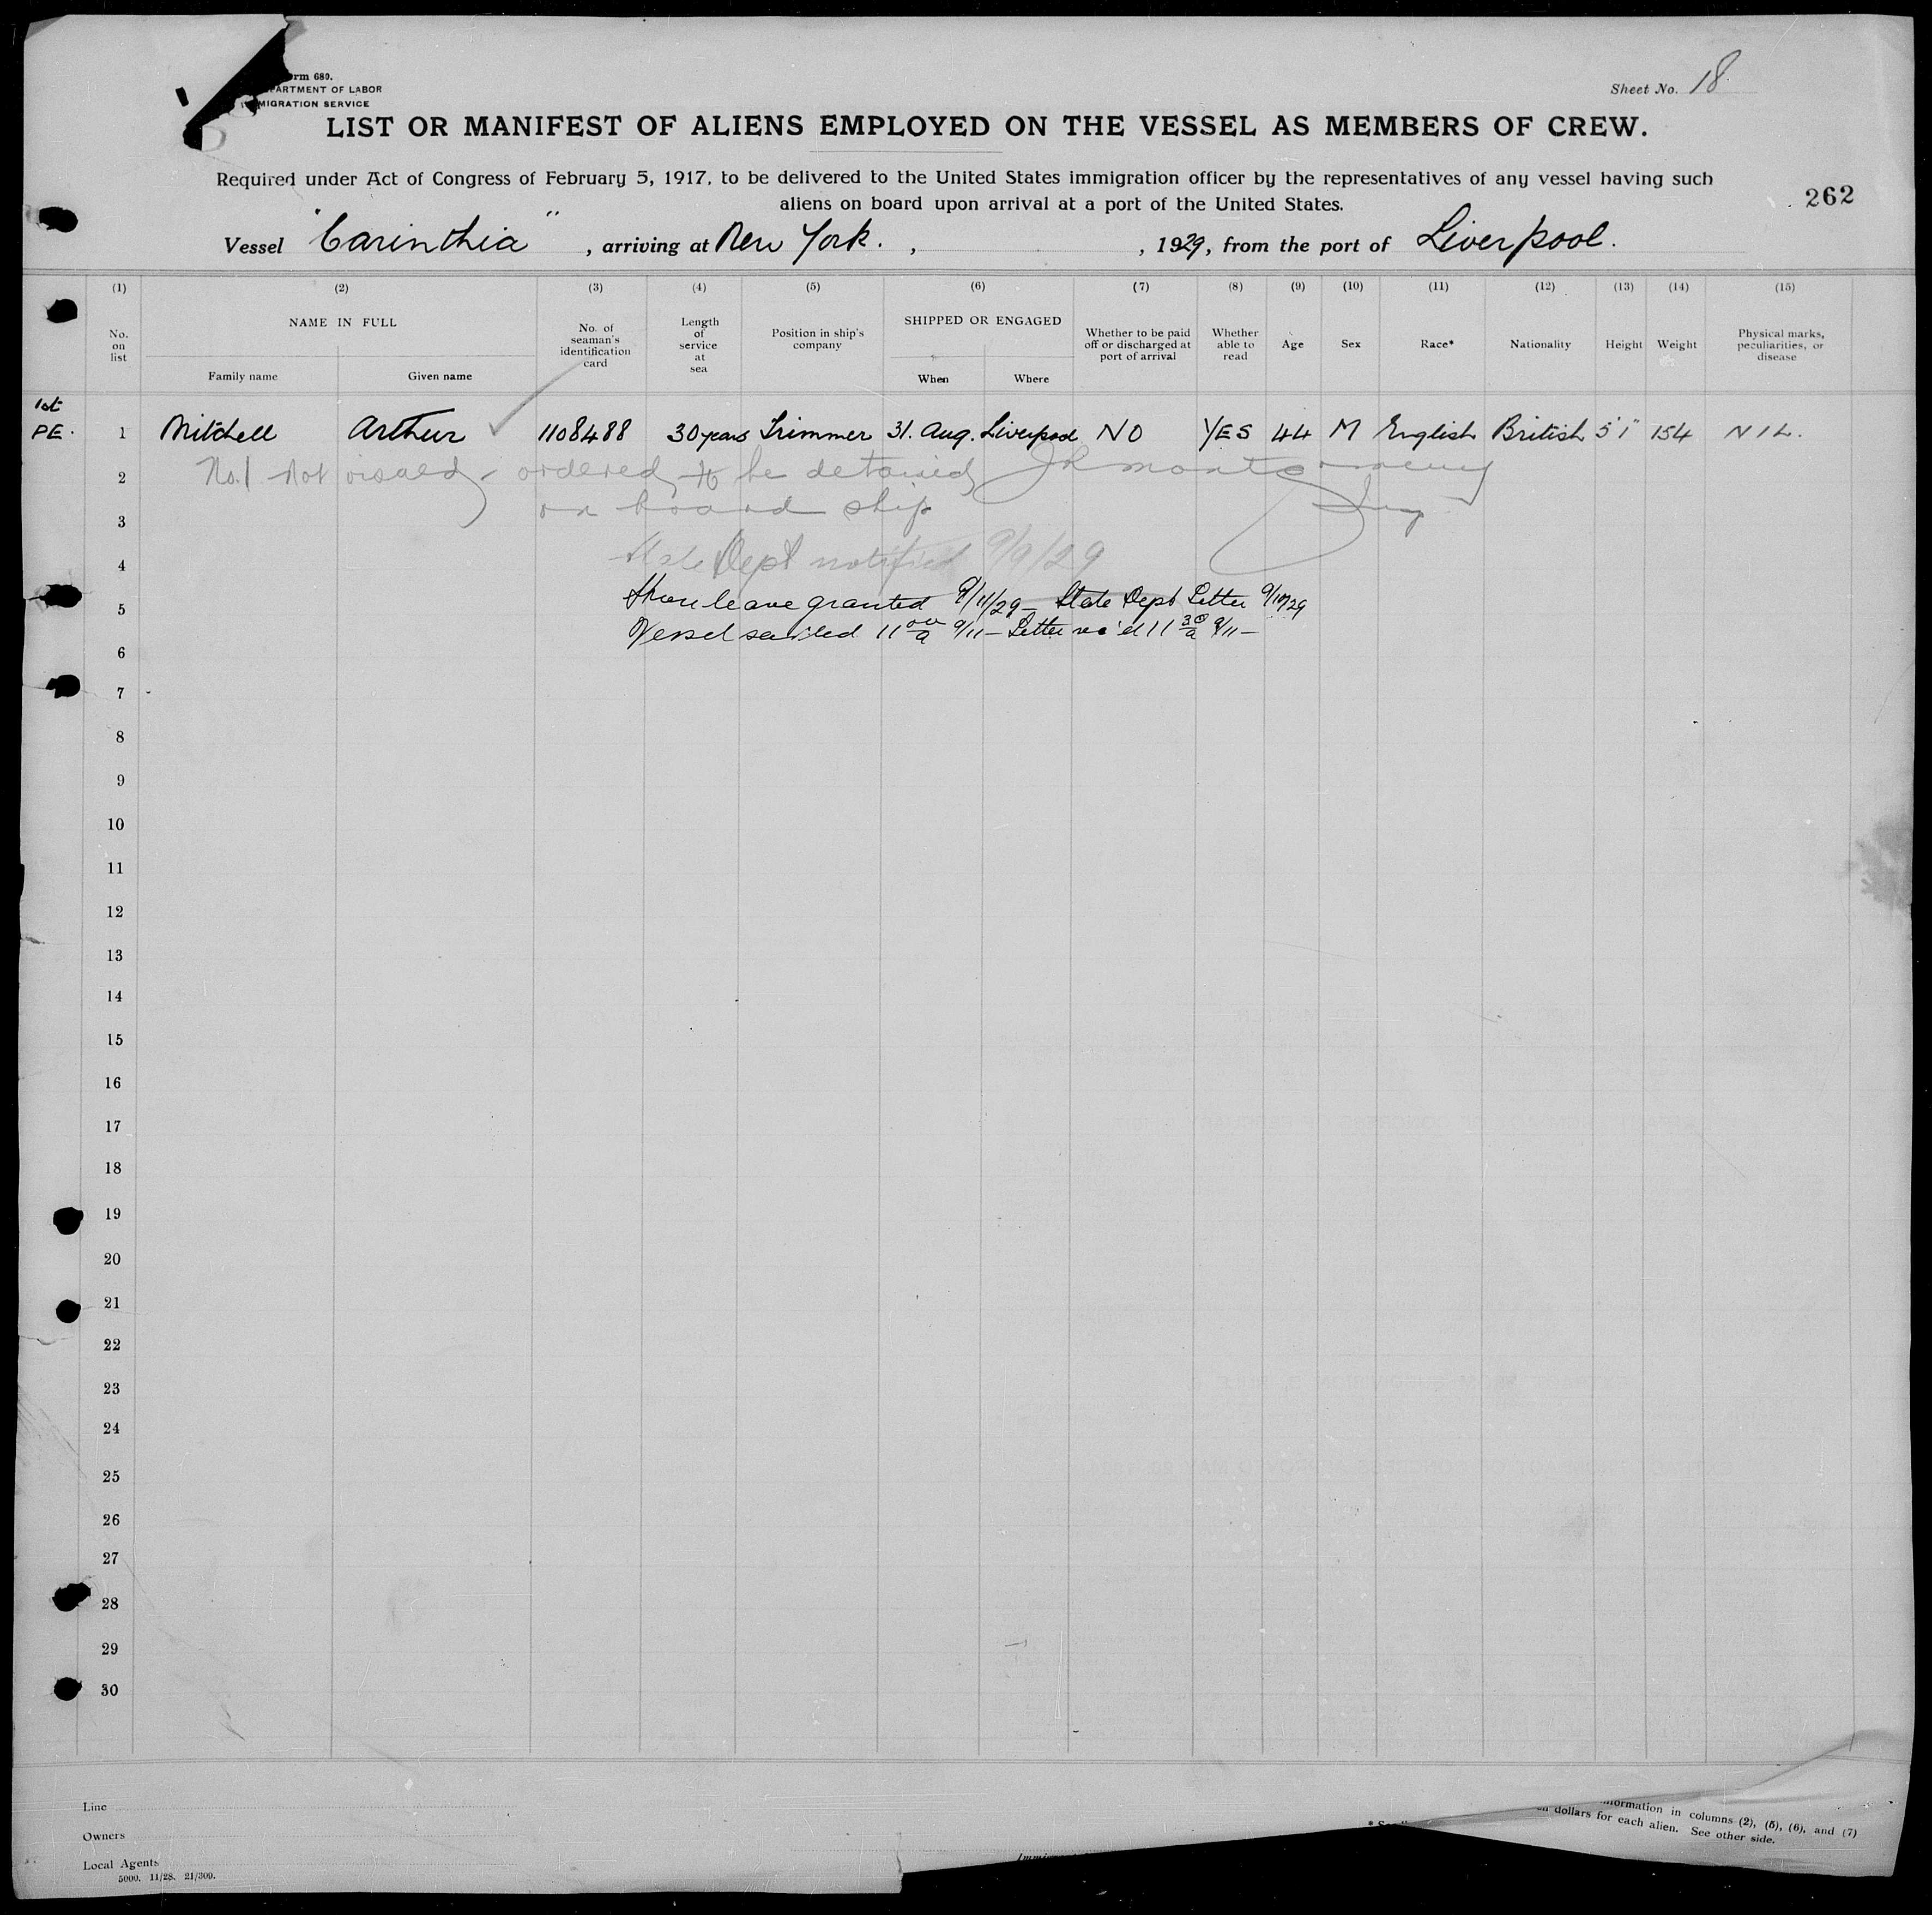 orm 680.
PARTMENT OF LABOR
MIGRATION SERVICE
Sheet No. 18
LIST OR MANIFEST OF ALIENS EMPLOYED ON THE VESSEL AS MEMBERS OF CREW.
Required under Act of Congress of February 5, 1917, to be delivered to the United States immigration officer by the representatives of any vessel having such
aliens on board upon arrival at a port of the United States.
262
Vessel "Carinthia", arriving at New York. , , 1929, from the port of Liverpool.
(1) (2) (3) (4) (5) (6) (7) (8) (9) (10) (11) (12) (13) (14) (15)
No. on list NAME IN FULL Family name Given name No. of seaman's identification card Length of service at sea Position in ship's company SHIPPED OR ENGAGED When Where Whether to be paid off or discharged at port of arrival Whether able to read Age Sex Race* Nationality Height Weight Physical marks, peculiarities, or disease
1st
PE. 1 Mitchell Arthur 1108488 30 years Trimmer 31. Aug. Liverpool NO YES 44 M English British 5'1" 154 NIL.
2 No.1 not visaed, ordered to be detained JR Montgomery
3 on board ship Insp
4 State Dept notified 9/9/29
5 Shore leave granted 9/11/29 - State Dept Letter 9/10/29
Vessel sailed 11 00/a 9/11 - Letter rec'd 11 30/a 9/11 -
6
7
8
9
10
11
12
13
14
15
16
17
18
19
20
21
22
23
24
25
26
27
28
29
30
Line
Owners
Local Agents
5000. 11/28. 21/309.
information in columns (2), (5), (6), and (7)
dollars for each alien. See other side.